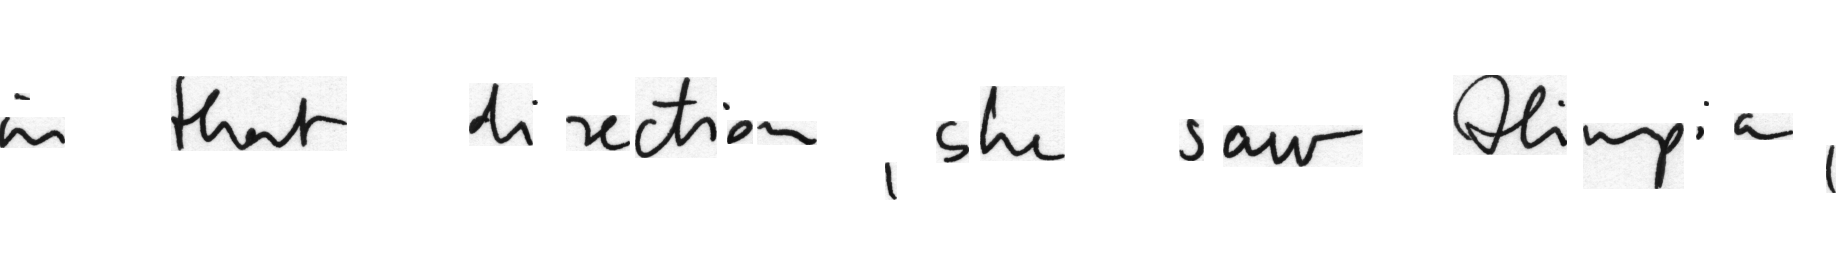 in that direction, she saw Olimpia,